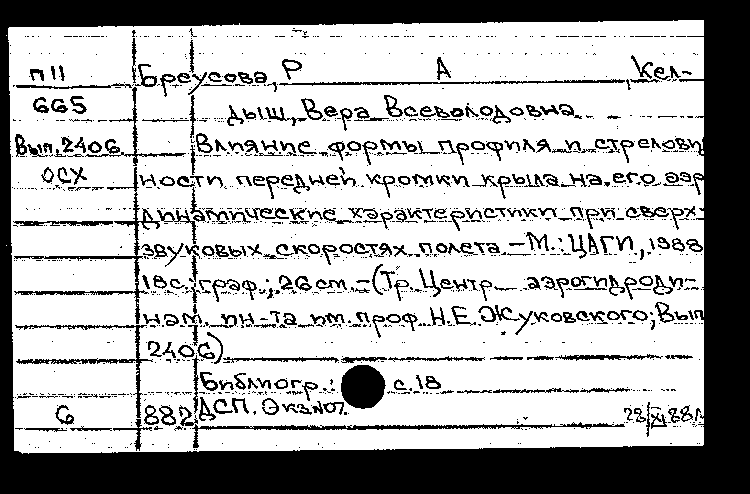 П11 Бреусова, Р А , Кел-
665 дыш, Вера Всеволодовна
Вып. 2406 Влияние формы профиля и стрелови
ОСХ ности передней кромки крыла на его аэр
динамические характеристики при сверх-
звуковых скоростях полета. – М.: ЦАГИ, 1988
18 с.: граф.; 26 см. – (Тр. Центр. аэрогидроди-
нам. ин-та им. проф. Н.Е. Жуковского; Вып
2406)
Библиогр.: с. 18
6 882 ДСП. Экз №07.